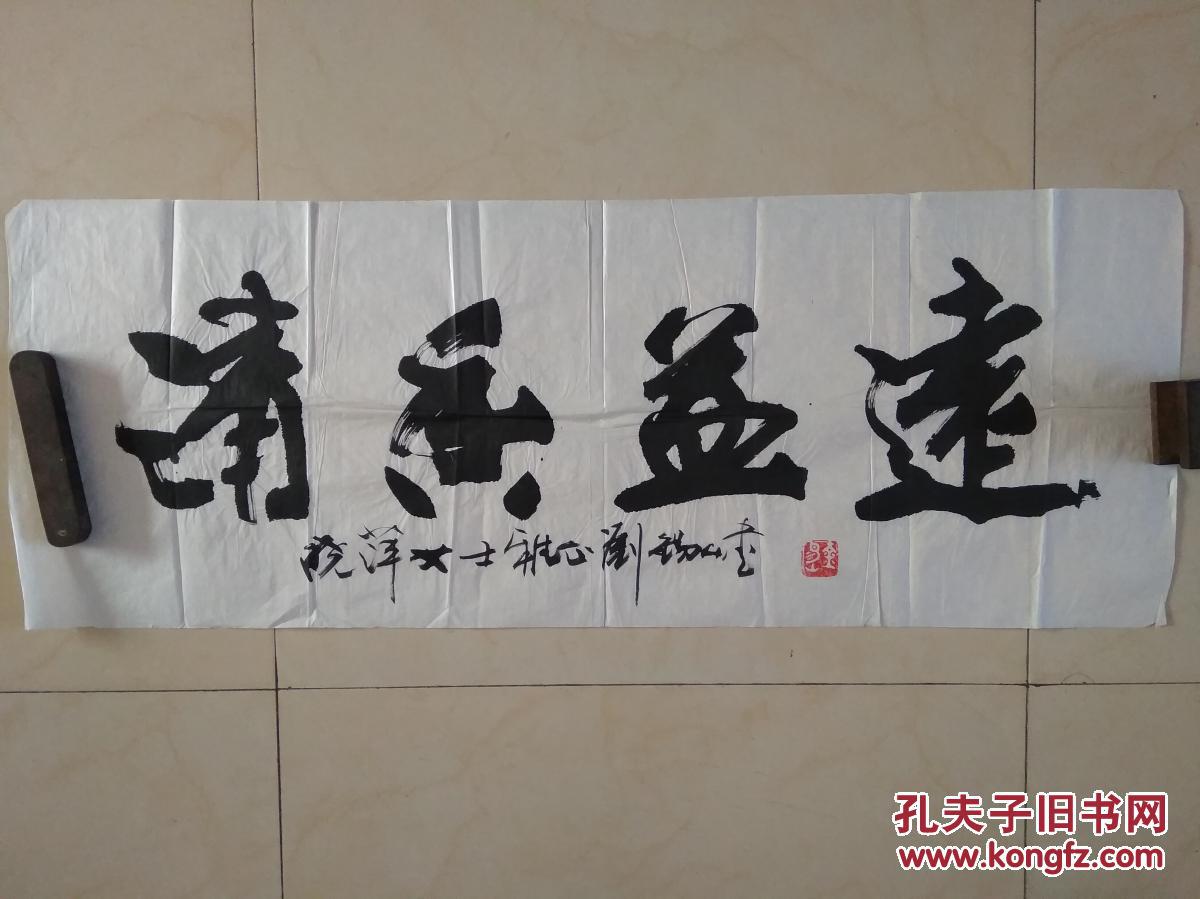 清香益遠
晓萍女士雅正劉锡山書
孔夫子旧书网
www.kongfz.com